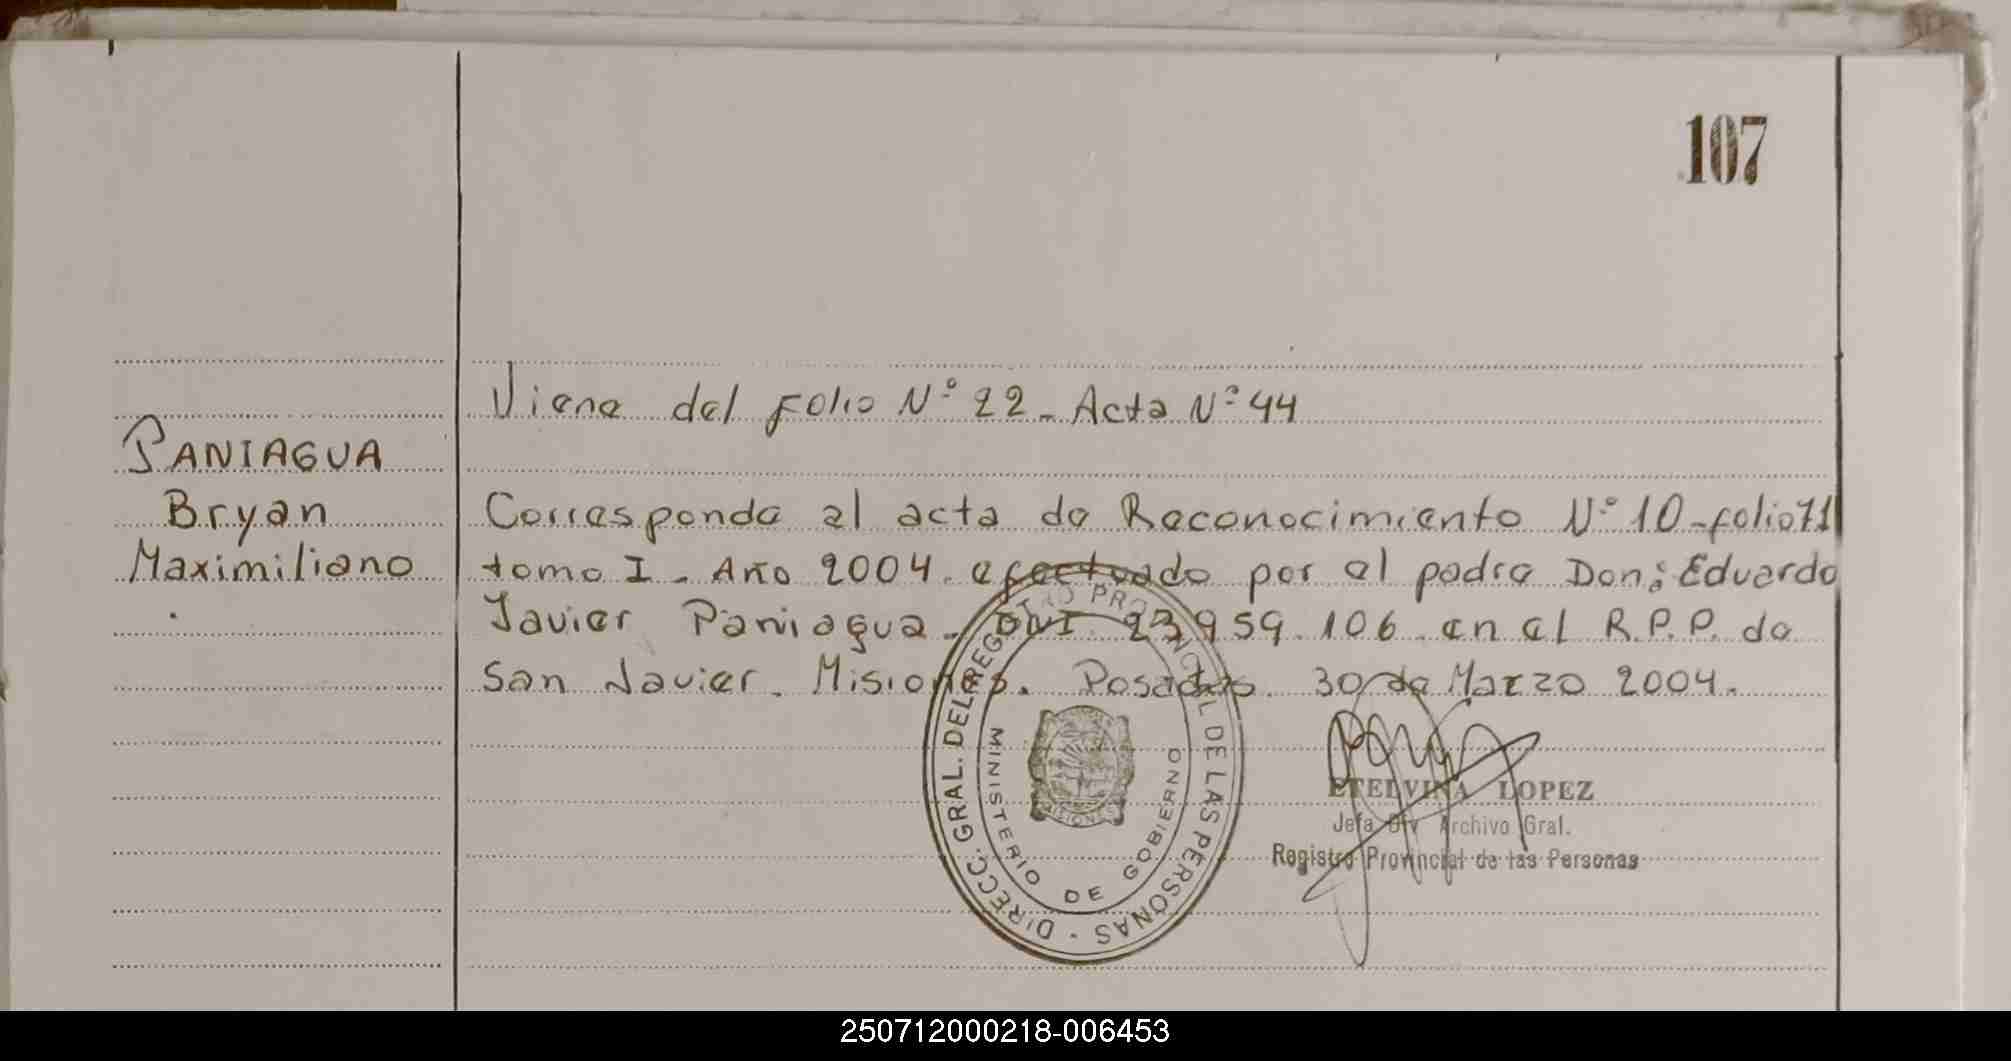 107
Viene del folio N° 22 - Acta N° 44
PANIAGUA
Bryan
Maximiliano
Corresponde al acta de Reconocimiento N° 10 - folio 71
tomo I - Año 2004. efectuado por el padre Don: Eduardo
Javier Paniagua - DNI. 23959.106. en el R.P.P. de
San Javier. Misiones. Posadas. 30 de Marzo 2004.
DIRECC. GRAL. DEL REGISTRO PROVINCIAL DE LAS PERSONAS -
MINISTERIO DE GOBIERNO
MISIONES
ETELVINA LOPEZ
Jefa Div Archivo Gral.
Registro Provincial de las Personas
250712000218-006453